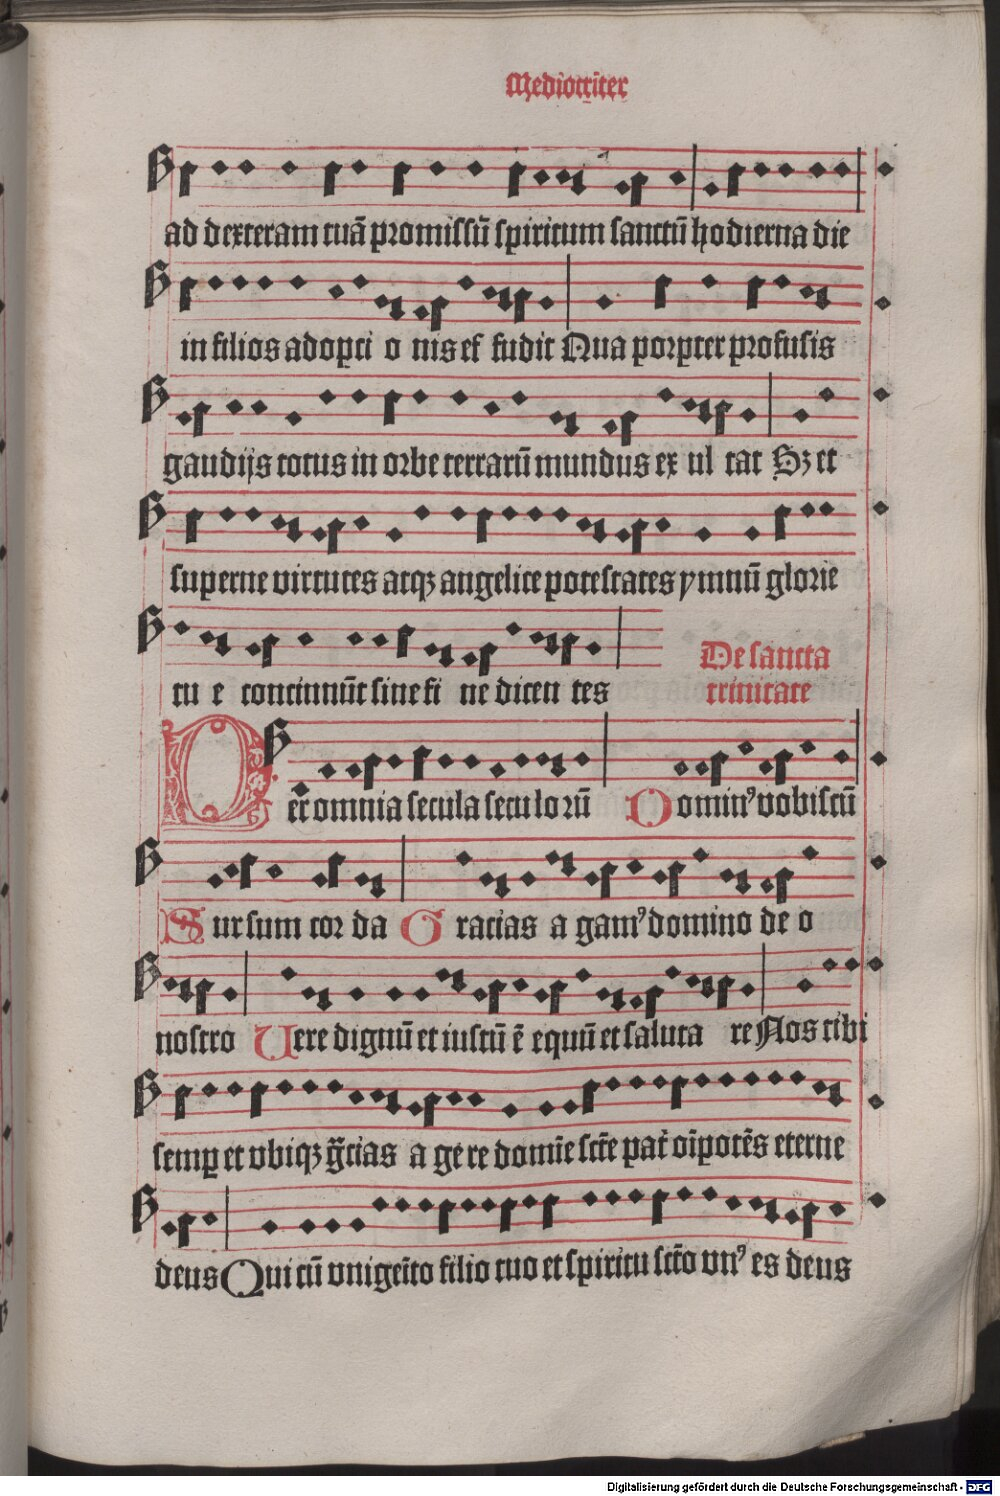 Mediocriter
ad dexteram tuā promissū spiritum sanctū hodierna die
in filios adopti o nis ef fudit Qua porpter profusis
gaudijs totus in orbe terrarū mundus ex ul tat Sꝫ et
superne virtutes atqꝫ angelice potestates ymnū glorie
tu e concinnūt sine fi ne dicen tes
De sancta
trinitate
Per omnia secula seculorū Dominꝰ vobiscū
Sursum cor da Gracias a gamꝰ domino de o
nostro Vere dignū et iustū ē equū et saluta re Nos tibi
semꝑ et vbiqꝫ gr̄cias a ge re domīe sctē pat̄ oīpotēs eterne
deus Qui cū vnigeīto filio tuo et spiritu sctō vnꝰ es deus
Digitalisierung gefördert durch die Deutsche Forschungsgemeinschaft - DFG